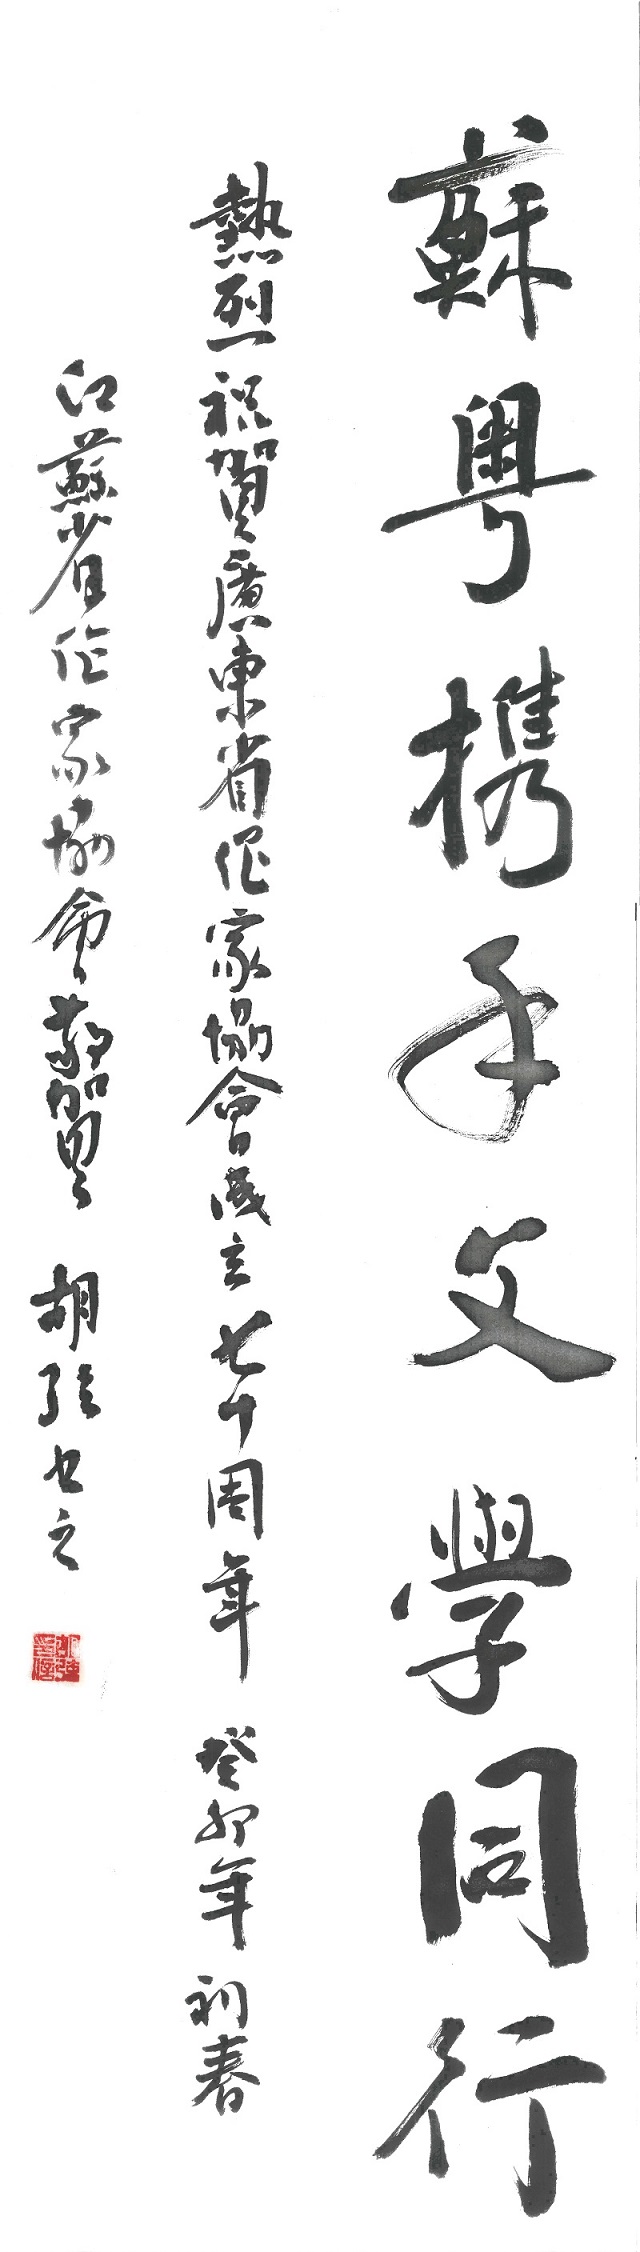 蘇粵携手文學同行
熱烈祝賀廣東省作家協會成立七十周年 癸卯年初春
江蘇省作家協會敬賀 胡弦書之